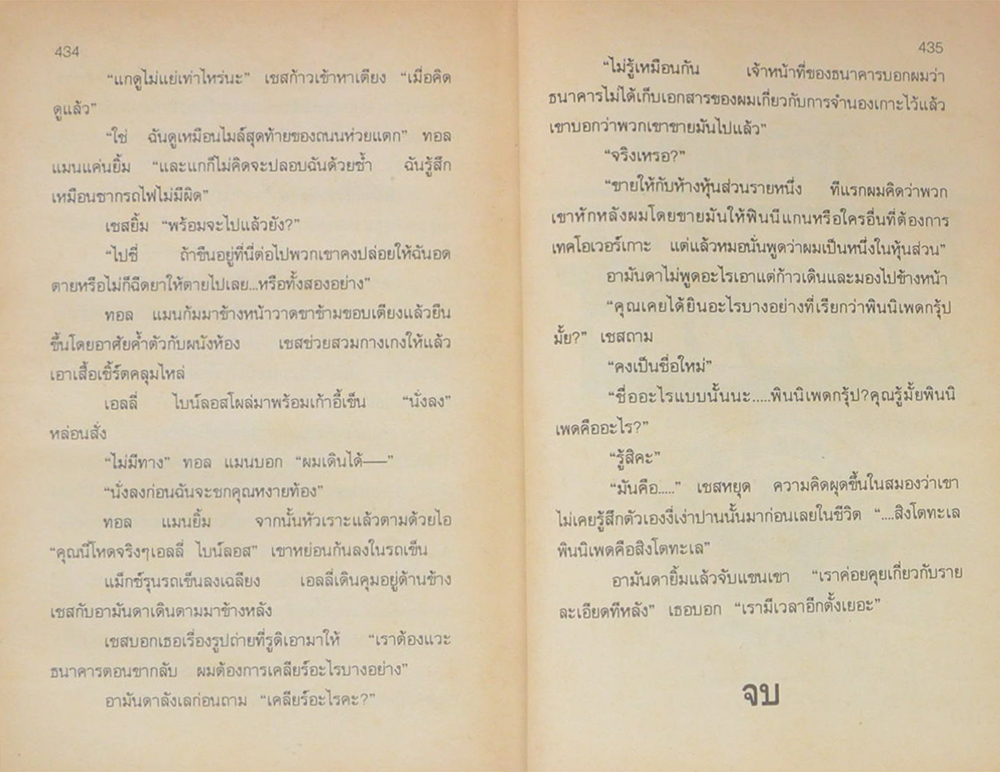 434
“แกดูไม่แย่เท่าไหร่นะ” เชสก้าวเข้าหาเตียง “เมื่อคิด
ดูแล้ว”
“ใช่ ฉันดูเหมือนไมล์สุดท้ายของถนนห่วยแตก” ทอล
แมนแค่นยิ้ม “และแกก็ไม่คิดจะปลอบฉันด้วยซ้ำ ฉันรู้สึก
เหมือนซากรถไฟไม่มีผิด”
เชสยิ้ม “พร้อมจะไปแล้วยัง?”
“ไปซี่ ถ้าขืนอยู่ที่นี่ต่อไปพวกเขาคงปล่อยให้ฉันอด
ตายหรือไม่ก็ฉีดยาให้ตายไปเลย...หรือทั้งสองอย่าง”
ทอล แมนก้มมาข้างหน้าวาดขาข้ามขอบเตียงแล้วยืน
ขึ้นโดยอาศัยค้ำตัวกับผนังห้อง เชสช่วยสวมกางเกงให้แล้ว
เอาเสื้อเชิ้ร์ตคลุมไหล่
เอลลี่ ไบน์ลอสโผล่มาพร้อมเก้าอี้เข็น “นั่งลง”
หล่อนสั่ง
“ไม่มีทาง” ทอล แมนบอก “ผมเดินได้—”
“นั่งลงก่อนฉันจะชกคุณหงายท้อง”
ทอล แมนยิ้ม จากนั้นหัวเราะแล้วตามด้วยไอ
“คุณนี่โหดจริงๆเอลลี่ ไบน์ลอส” เขาหย่อนก้นลงในรถเข็น
แม็กซ์รุนรถเข็นลงเฉลียง เอลลี่เดินคุมอยู่ด้านข้าง
เชสกับอามันดาเดินตามมาข้างหลัง
เชสบอกเธอเรื่องรูปถ่ายที่รูดิเอามาให้ “เราต้องแวะ
ธนาคารตอนขากลับ ผมต้องการเคลียร์อะไรบางอย่าง”
อามันดาลังเลก่อนถาม “เคลียร์อะไรคะ?”
435
“ไม่รู้เหมือนกัน เจ้าหน้าที่ของธนาคารบอกผมว่า
ธนาคารไม่ได้เก็บเอกสารของผมเกี่ยวกับการจำนองเกาะไว้แล้ว
เขาบอกว่าพวกเขาขายมันไปแล้ว”
“จริงเหรอ?”
“ขายให้กับห้างหุ้นส่วนรายหนึ่ง ทีแรกผมคิดว่าพวก
เขาหักหลังผมโดยขายมันให้ฟินนีแกนหรือใครอื่นที่ต้องการ
เทคโอเวอร์เกาะ แต่แล้วหมอนั่นพูดว่าผมเป็นหนึ่งในหุ้นส่วน”
อามันดาไม่พูดอะไรเอาแต่ก้าวเดินและมองไปข้างหน้า
“คุณเคยได้ยินอะไรบางอย่างที่เรียกว่าพินนิเพดกรุ้ป
มั้ย?” เชสถาม
“คงเป็นชื่อใหม่”
“ชื่ออะไรแบบนั้นนะ.....พินนิเพดกรุ้ป?คุณรู้มั้ยพินนิ
เพดคืออะไร?”
“รู้สิคะ”
“มันคือ.....” เชสหยุด ความคิดผุดขึ้นในสมองว่าเขา
ไม่เคยรู้สึกตัวเองงี่เง่าปานนั้นมาก่อนเลยในชีวิต “....สิงโตทะเล
พินนิเพดคือสิงโตทะเล”
อามันดายิ้มแล้วจับแขนเขา “เราค่อยคุยเกี่ยวกับราย
ละเอียดทีหลัง” เธอบอก “เรามีเวลาอีกตั้งเยอะ”
จบ